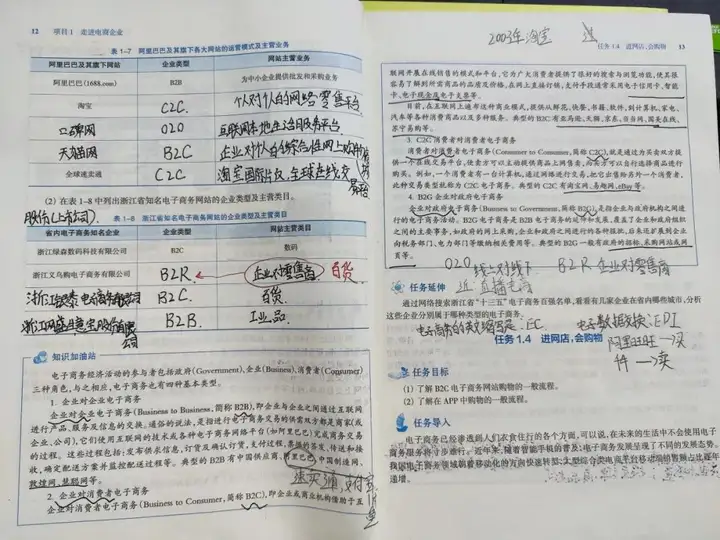 12 项目1 走进电商企业
表1-7 阿里巴巴及其旗下各大网站的运营模式及主营业务
阿里巴巴及其旗下网站 企业类型 网站主营业务
阿里巴巴(1688.com) B2B 为中小企业提供批发和采购业务
淘宝 C2C 个人对个人的网络零售平台
口碑网 O2O 互联网本地生活服务平台
天猫网 B2C 企业对个人的综合性网上购物
全球速卖通 C2C 淘宝国际片反,全球在线交易平台
(2)在表1-8中列出浙江省知名电子商务网站的企业类型及主营类目。
股份(上市公司).
表1-8 浙江省知名电子商务网站的企业类型及主营类目
省内电子商务知名企业 企业类型 网站主营类目
浙江绿森数码科技有限公司 B2C 数码
浙江义乌购电子商务有限公司 B2R 企业对零售商 百货
浙江银泰电子商务有限公司 B2C 百货
浙江网盛生意宝股份有限公司 B2B 工业品
知识加油站
电子商务经济活动的参与者包括政府(Government)、企业(Business)、消费者(Consumer)
三种角色,与之相应,电子商务也有四种基本类型。
1. 企业对企业电子商务
企业对企业电子商务(Business to Business,简称B2B),即企业与企业之间通过互联网
进行产品、服务及信息的交换。通俗的说法,是指进行电子商务交易的供需双方都是商家(或
企业、公司),它们使用互联网的技术或各种电子商务网络平台(如阿里巴巴)完成商务交易
的过程。这些过程包括:发布供求信息,订货及确认订货,支付过程,票据的签发、传送和接
收,确定配送方案并监控配送过程等。典型的B2B有中国供应商、阿里巴巴、中国制造网、
敦煌网、慧聪网等。
速卖通,支付宝
2. 企业对消费者电子商务
企业对消费者电子商务(Business to Consumer,简称B2C),即企业或商业机构借助于互
2003年淘宝
任务1.4 进网店,会购物 13
联网开展在线销售的模式和平台,它为广大消费者提供了很好的搜索与浏览功能,使其很
容易了解到所需商品的品质及价格,在网上直接订购,支付手段通常采用电子信用卡、智能
卡、电子现金及电子支票等。
目前,在互联网上通行这种商业模式,提供从鲜花、快餐、书籍、软件,到计算机、家电、
汽车等各种消费商品以及多种服务。典型B2C有亚马逊、天猫、京东、当当网、国美在线、
苏宁易购等。
3. C2C消费者对消费者电子商务
消费者对消费者电子商务(Consumer to Consumer,简称C2C),就是通过为买卖双方提供
一个在线交易平台,使卖方可以主动提供商品上网销售,而买方可以自行选择商品进行
购买。例如,一个消费者有一台计算机,通过网络进行交易,把它出售给另外一个消费者,此
种交易类型就称为C2C电子商务。典型的C2C有淘宝网、易趣网、eBay等。
4. B2G企业对政府电子商务
企业对政府电子商务(Business to Government,简称B2G),是指企业与政府机构之间进
行的电子商务活动。B2G电子商务是B2B电子商务的延伸和发展,覆盖了企业和政府组织之
间的主要事务,如政府的网上采购,企业和政府之间进行的各种报批,后来还扩展到企业
向税务部门、电力部门等缴纳相关费用等。典型的B2G一般有政府的招标、采购网站或网
页等。
O2O 线上对线下. B2R 企业对零售商
任务延伸
近直播电商
通过网络搜索浙江省“十三五”电子商务百强名单,看看有几家企业在省内哪些城市,分析
这些企业分别属于哪种类型的电子商务。
电子商务的英文缩写是:EC 电子数据交换:EDI
任务1.4 进网店,会购物
阿里旺旺→买
件→卖
任务目标
(1)了解B2C电子商务网站购物的一般流程。
(2)了解在APP中购物的一般流程。
任务导入
电子商务已经渗透到人们衣食住行的各个方面,可以说,在未来的生活中不会使用电子
商务服务将寸步难行。近年来,随着智能手机的普及,电子商务发展呈现了不同的发展态势。
我国电子商务领域朝着移动化的方向快速转型,大型综合类电商平台移动端销售额占比逐年
递增。